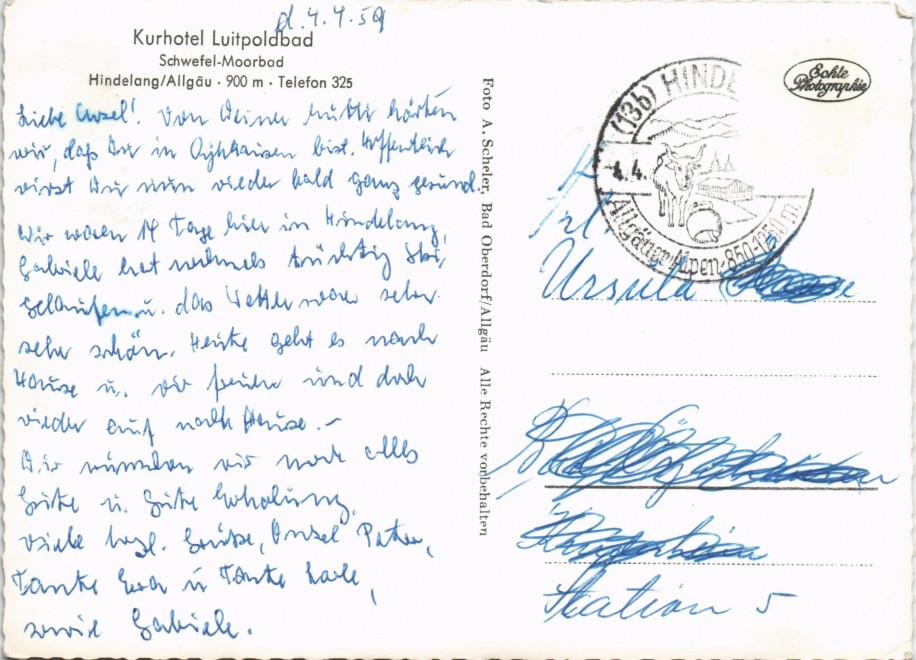 d. 4.4.59
Kurhotel Luitpoldbad
Schwefel-Moorbad
Hindelang/Allgäu · 900 m · Telefon 325
Liebe Ursel! Von Deiner Mutti hörten
wir, daß Du in Oeynhausen bist. Hoffentlich
wirst Du nun wieder bald ganz gesund.
Wir waren 14 Tage hier in Hindelang,
Gabriele hat nochmals tüchtig Ski
gelaufen u. das Wetter war sehr
sehr schön. Heute geht es nach
Hause u. wir freuen uns doch
wieder auf nach Hause.–
Dir wünschen wir noch alles
Gute u. Gute Erholung,
Viele herzl. Grüße, Onkel Peter,
Tante u Tante
sowie Gabriele.
Foto A. Scheler, Bad Oberdorf/Allgäu Alle Rechte vorbehalten
(13b) HINDE
4.4.
Allgäuer Alpen-850-1150 m
Echte
Photographie
Frl.
Ursula
Station 5